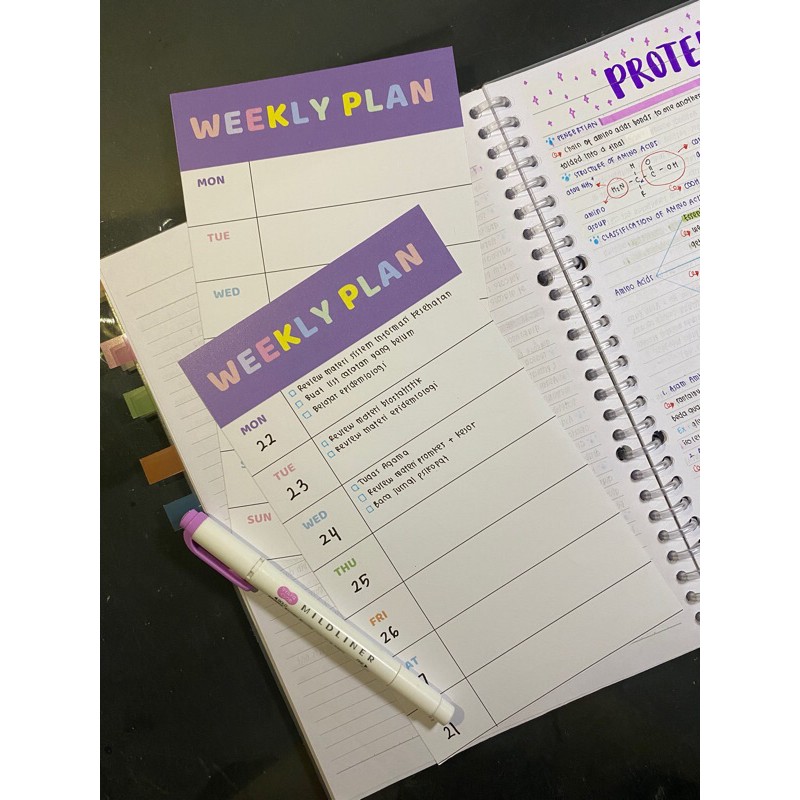 WEEKLY PLAN
MON
TUE
WED
SUN
WEEKLY PLAN
MON
22
Review materi sistem informasi kesehatan
Buat list catatan yang belum
Belajar epidemiologi
TUE
23
Review materi biostatistik
Review materi epidemiologi
WED
24
Tugas Agama
Review materi promkes + kesor
Baca jurnal psikopat
THU
25
FRI
26
AT
7
21
MILDLINER
PROTE
PENGERTIAN
Chain of amino acids bonds to one another
folded into a final
STRUCTURE OF AMINO ACIDS
H O
H2N - C - C - OH
amino
group
COOH
CLASSIFICATION OF AMINO ACI
Amino Acids
1. Asam Ami
beda